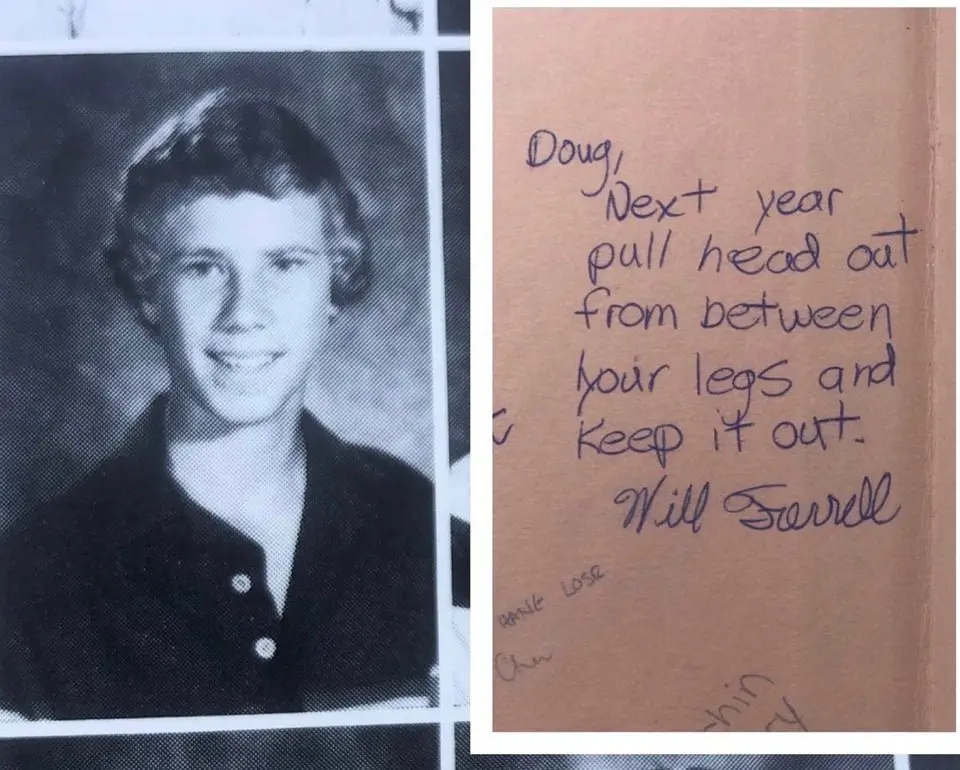 Doug,
Next year
pull head out
from between
your legs and
keep it out.
Will Ferrell
LOSR